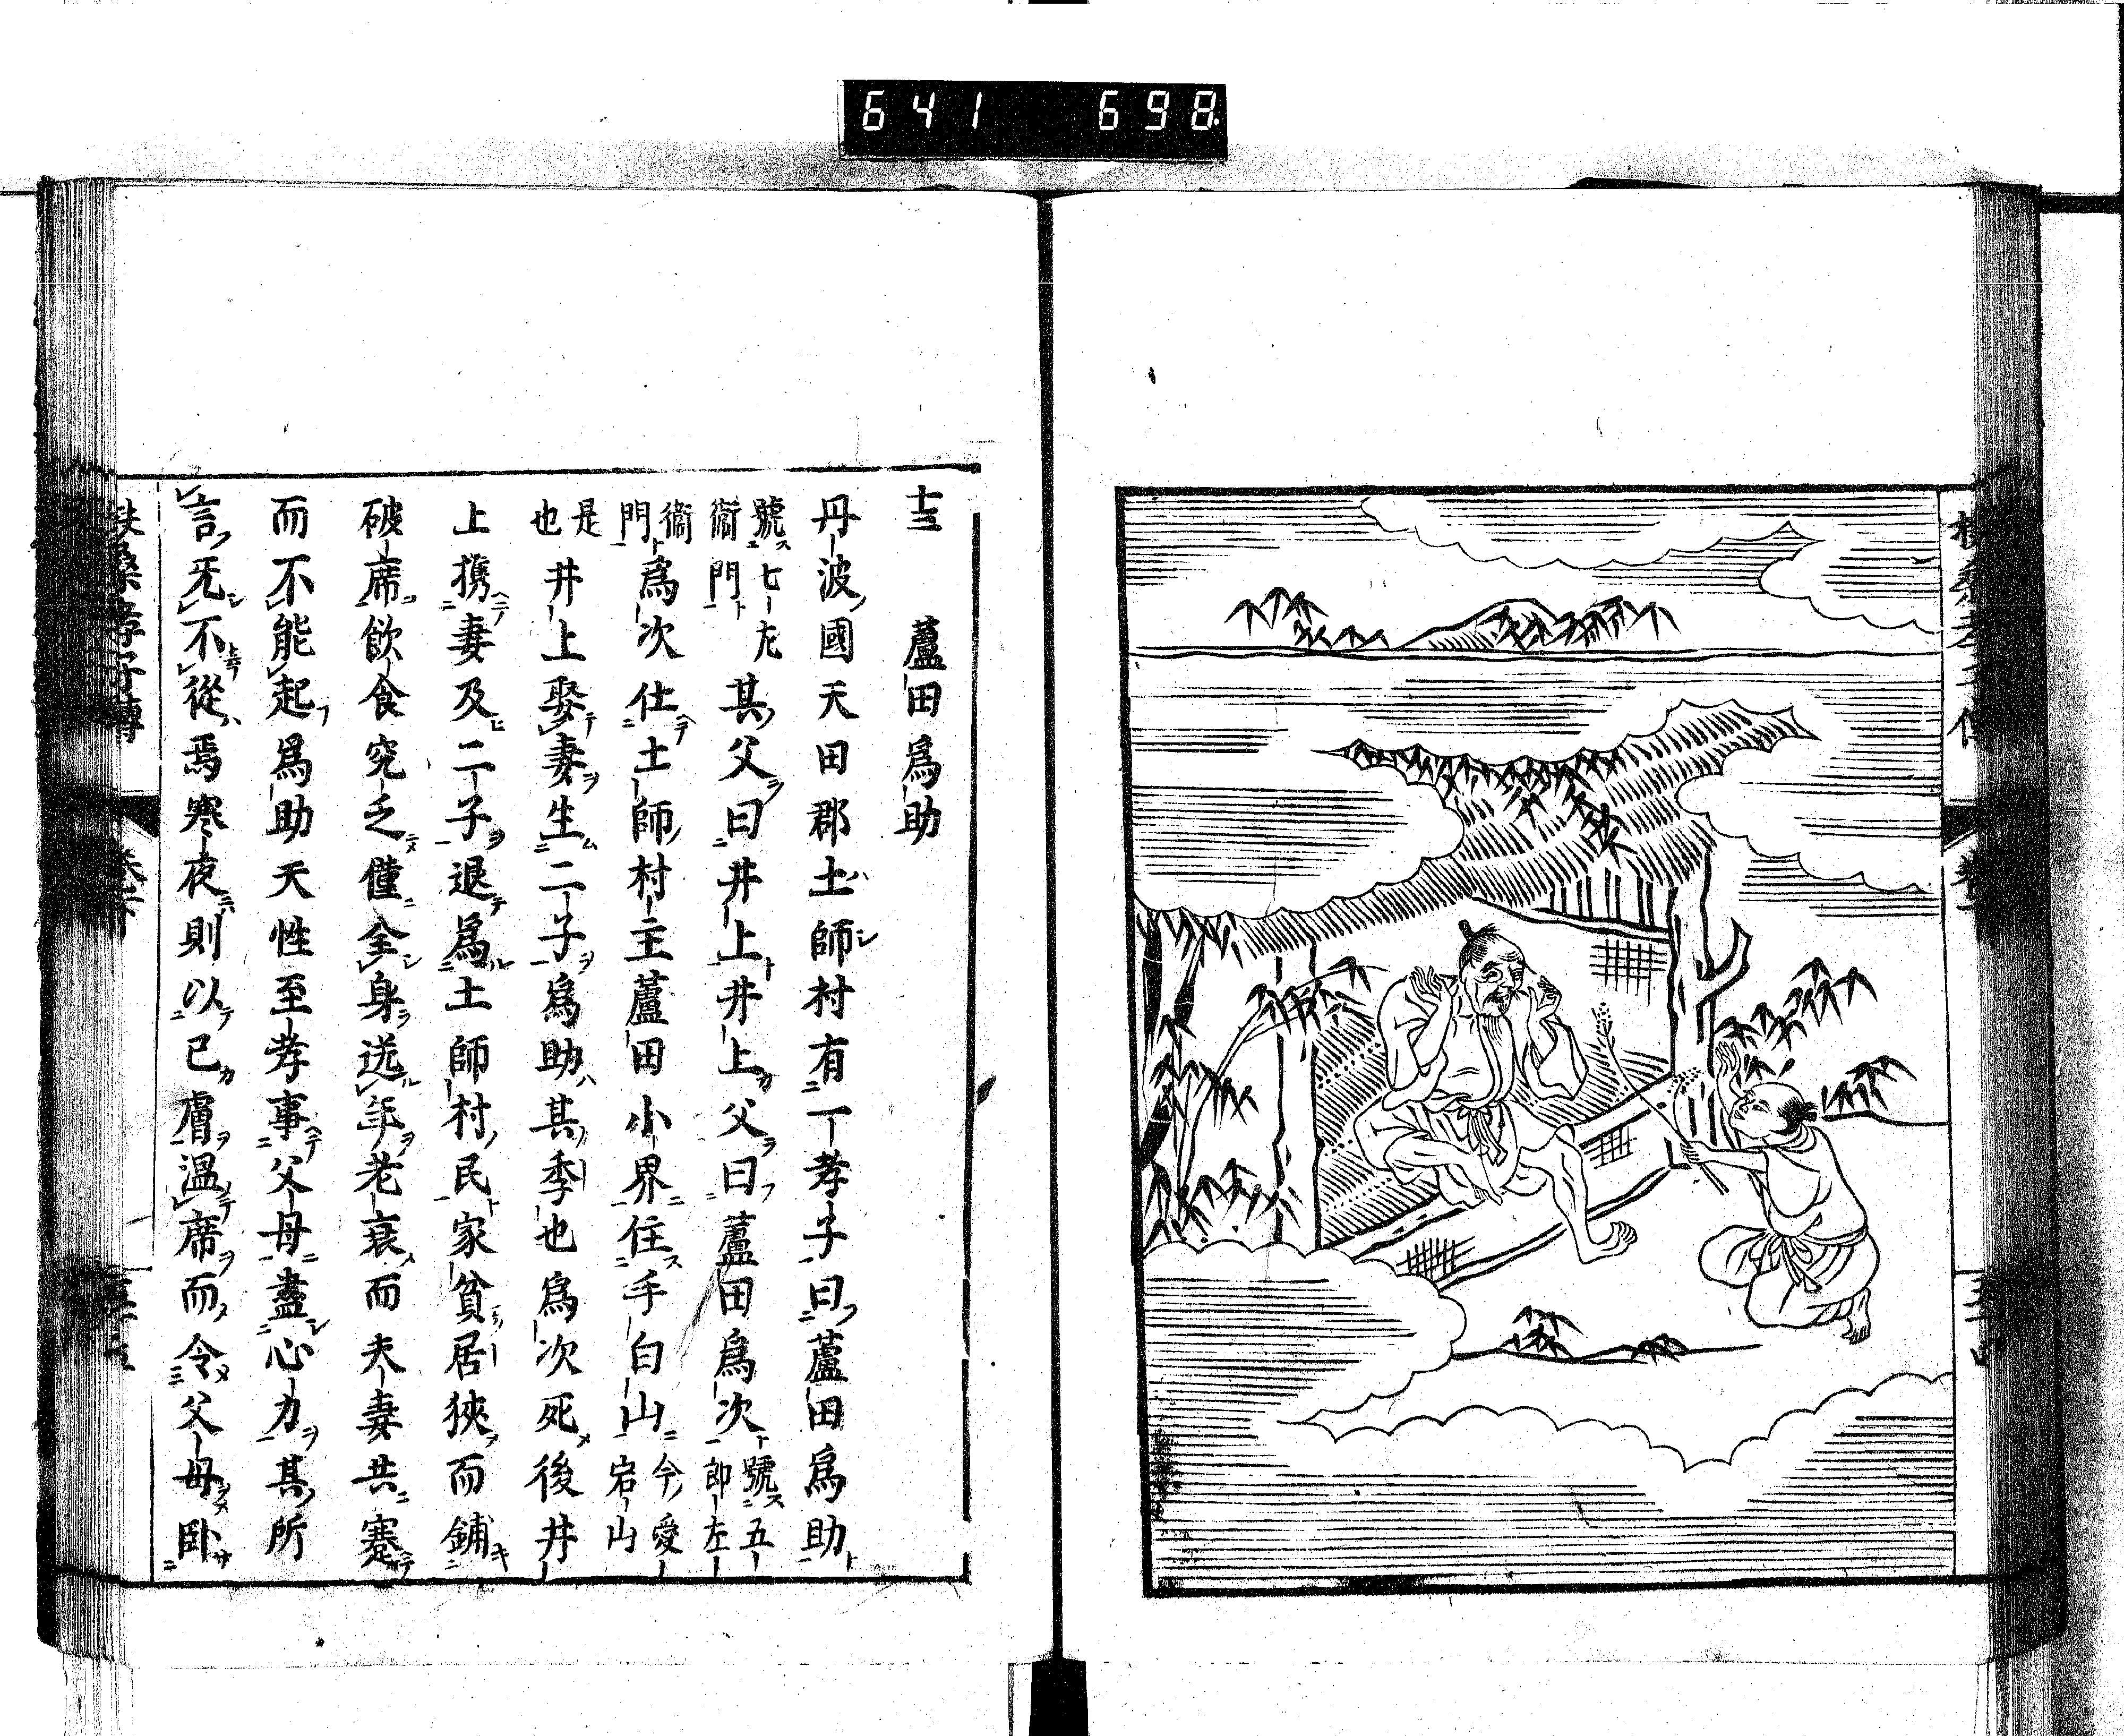 641 698
十三 蘆田爲助
丹波國天田郡土師村有一孝子曰蘆田爲助
號七左衞門其父曰井上井上父曰蘆田爲次號五郎左
衞門爲次仕土師村主蘆田小界住手白山今愛宕山
是也井上娶妻生二子爲助其季也爲次死後井
上携妻及二子退爲土師村民家貧居狹而鋪
破席飮食究乏僅全身送年老衰而夫妻共蹇
而不能起爲助天性至孝事父母盡心力其所
言旡不從焉寒夜則以己膚溫席而令父母臥
扶桑孝子傳